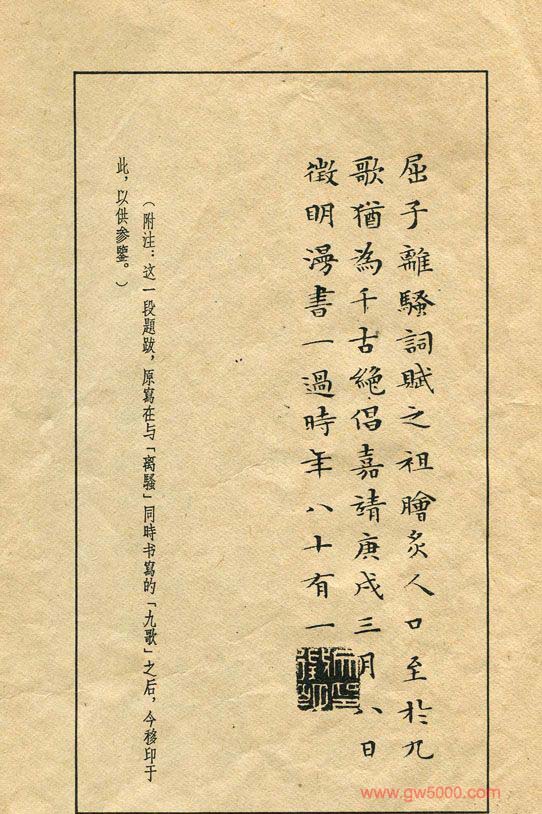 屈子離騷詞賦之祖膾炙人口至於九
歌猶為千古絶倡嘉靖庚戌三月八日
徵明漫書一過時年八十有一
（附注：这一段題跋，原寫在与「离騷」同時书寫的「九歌」之后，今移印于
此，以供参鑒。）
www.gw5000.com